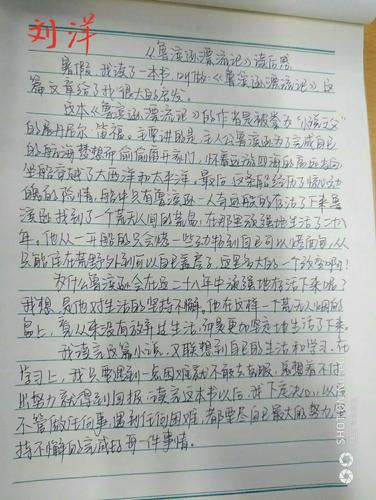 刘洋
《鲁滨逊漂流记》读后感
暑假,我读了一本书,叫做《鲁滨逊漂流记》,这
篇文章给了我很大的启发。
这本《鲁滨逊漂流记》的作者是被誉为“小说之父”
的丹尼尔·笛福。主要讲的是,主人公鲁滨逊为了完成自己
的航海梦想而偷偷离开家门,怀着远游四海的高远志向
坐船穿越了大西洋和太平洋。最后,这条船经历了惊心动
魄的险情,船中只有鲁滨逊一人奇迹般的存活了下来鲁
滨逊找到了一个荒无人间的荒岛,在那里顽强地生活了二十八
年。他从一开始的只会
只能住在荒野外到可以自己盖房子,这里多大的一个改变啊!
为什么鲁滨逊会在这二十八年中顽强地存活下来呢?
我想,是他对生活的坚持不懈。他在这样一个荒无人烟的
岛上,看从来没有放弃过生活,而是更加坚定地生活了下来。
我读完这篇小说,又联想到自己的生活和学习。在
学习上,我只要遇到一点困难就不敢去克服,总想着不付
出努力就得到回报,读完这本书以后,我下定决心,以后
不管做任何事,遇到任何困难,都要尽自己最大的努力,坚
持不懈的完成好每一件事情。
SHOT ON